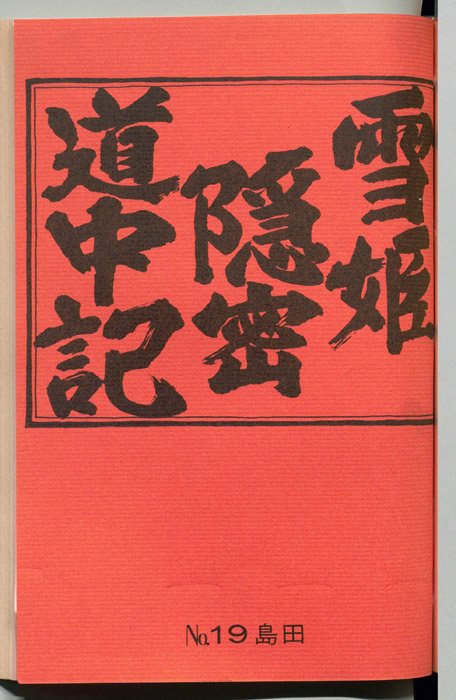 雪姫
隠密
道中記
No.19 島田